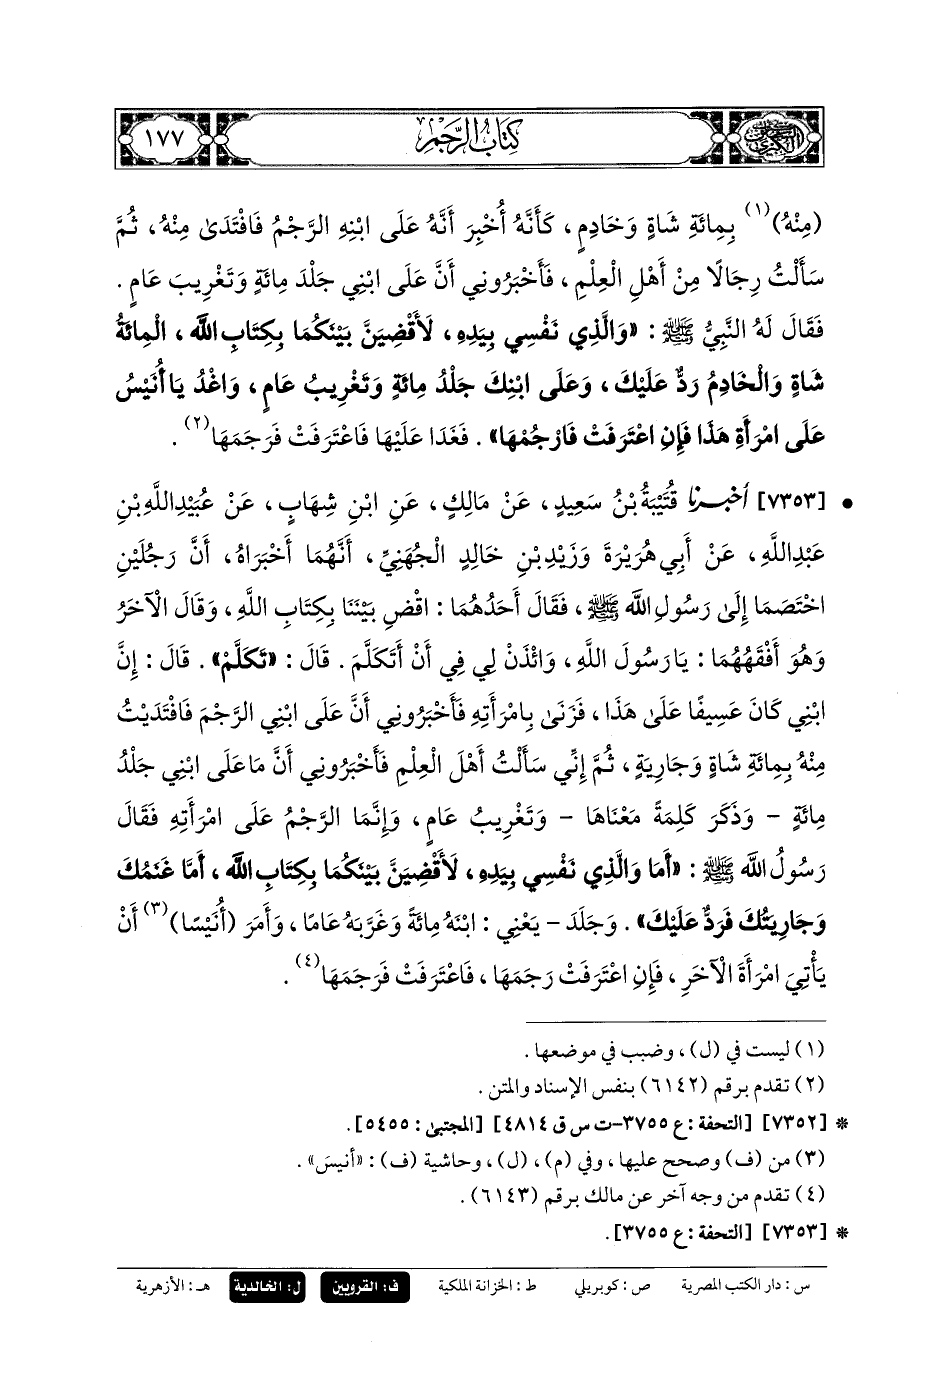 السنن الكبرى
كتاب الرجم
١٧٧
(مِنْهُ)(١) بِمِائَةِ شَاةٍ وَخَادِمٍ، كَأَنَّهُ أُخْبِرَ أَنَّهُ عَلَى ابْنِهِ الرَّجْمُ فَافْتَدَىٰ مِنْهُ، ثُمَّ
سَأَلْتُ رِجَالًا مِنْ أَهْلِ الْعِلْمِ، فَأَخْبَرُونِي أَنَّ عَلَى ابْنِي جَلْدَ مِائَةٍ وَتَغْرِيبَ عَامٍ.
فَقَالَ لَهُ النَّبِيُّ ﷺ: «وَالَّذِي نَفْسِي بِيَدِهِ، لَأَقْضِيَنَّ بَيْنَكُمَا بِكِتَابِ اللَّه، الْمِائَةُ
شَاةٍ وَالْخَادِمُ رَدٌّ عَلَيْكَ، وَعَلَى ابْنِكَ جَلْدُ مِائَةٍ وَتَغْرِيبُ عَامٍ، وَاغْدُ يَا أُنَيْسُ
عَلَى امْرَأَةِ هَذَا فَإِنِ اعْتَرَفَتْ فَارْجُمْهَا». فَغَدَا عَلَيْهَا فَاعْتَرَفَتْ فَرَجَمَهَا(٢).
• [٧٣٥٣] أخبرنا قُتَيْبَةُ بْنُ سَعِيدٍ، عَنْ مَالِكٍ، عَنِ ابْنِ شِهَابٍ، عَنْ عُبَيْدِاللَّهِ بْنِ
عَبْدِاللَّهِ، عَنْ أَبِي هُرَيْرَةَ وَزَيْدِ بْنِ خَالِدٍ الْجُهَنِيِّ، أَنَّهُمَا أَخْبَرَاهُ، أَنَّ رَجُلَيْنِ
اخْتَصَمَا إِلَىٰ رَسُولِ اللَّه ﷺ، فَقَالَ أَحَدُهُمَا: اقْضِ بَيْنَنَا بِكِتَابِ اللَّهِ، وَقَالَ الْآخَرُ
وَهُوَ أَفْقَهُهُمَا: يَا رَسُولَ اللَّهِ، وَائْذَنْ لِي فِي أَنْ أَتَكَلَّمَ. قَالَ: «تَكَلَّمْ». قَالَ: إِنَّ
ابْنِي كَانَ عَسِيفًا عَلَىٰ هَذَا، فَزَنَىٰ بِامْرَأَتِهِ فَأَخْبَرُونِي أَنَّ عَلَى ابْنِي الرَّجْمَ فَافْتَدَيْتُ
مِنْهُ بِمِائَةِ شَاةٍ وَجَارِيَةٍ، ثُمَّ إِنِّي سَأَلْتُ أَهْلَ الْعِلْمِ فَأَخْبَرُونِي أَنَّ مَا عَلَى ابْنِي جَلْدُ
مِائَةٍ - وَذَكَرَ كَلِمَةً مَعْنَاهَا - وَتَغْرِيبُ عَامٍ، وَإِنَّمَا الرَّجْمُ عَلَى امْرَأَتِهِ فَقَالَ
رَسُولُ اللَّه ﷺ: «أَمَا وَالَّذِي نَفْسِي بِيَدِهِ، لَأَقْضِيَنَّ بَيْنَكُمَا بِكِتَابِ اللَّه، أَمَّا غَنَمُكَ
وَجَارِيَتُكَ فَرَدٌّ عَلَيْكَ». وَجَلَدَ - يَعْنِي: ابْنَهُ مِائَةً وَغَرَّبَهُ عَامًا، وَأَمَرَ (أُنَيْسًا)(٣) أَنْ
يَأْتِيَ امْرَأَةَ الْآخَرِ، فَإِنِ اعْتَرَفَتْ رَجَمَهَا، فَاعْتَرَفَتْ فَرَجَمَهَا(٤).
(١) ليست في (ل)، وضبب في موضعها.
(٢) تقدم برقم (٦١٤٢) بنفس الإسناد والمتن.
* [٧٣٥٢] [التحفة: ع ٣٧٥٥-ت س ق ٤٨١٤] [المجتبىٰ: ٥٤٥٥].
(٣) من (ف) وصحح عليها، وفي (م)، (ل)، وحاشية (ف): «أنيسَ».
(٤) تقدم من وجه آخر عن مالك برقم (٦١٤٣).
* [٧٣٥٣] [التحفة: ع ٣٧٥٥].
س: دار الكتب المصرية ص: كوبريلي ط: الخزانة الملكية ف: القرويين ل: الخالدية هـ: الأزهرية